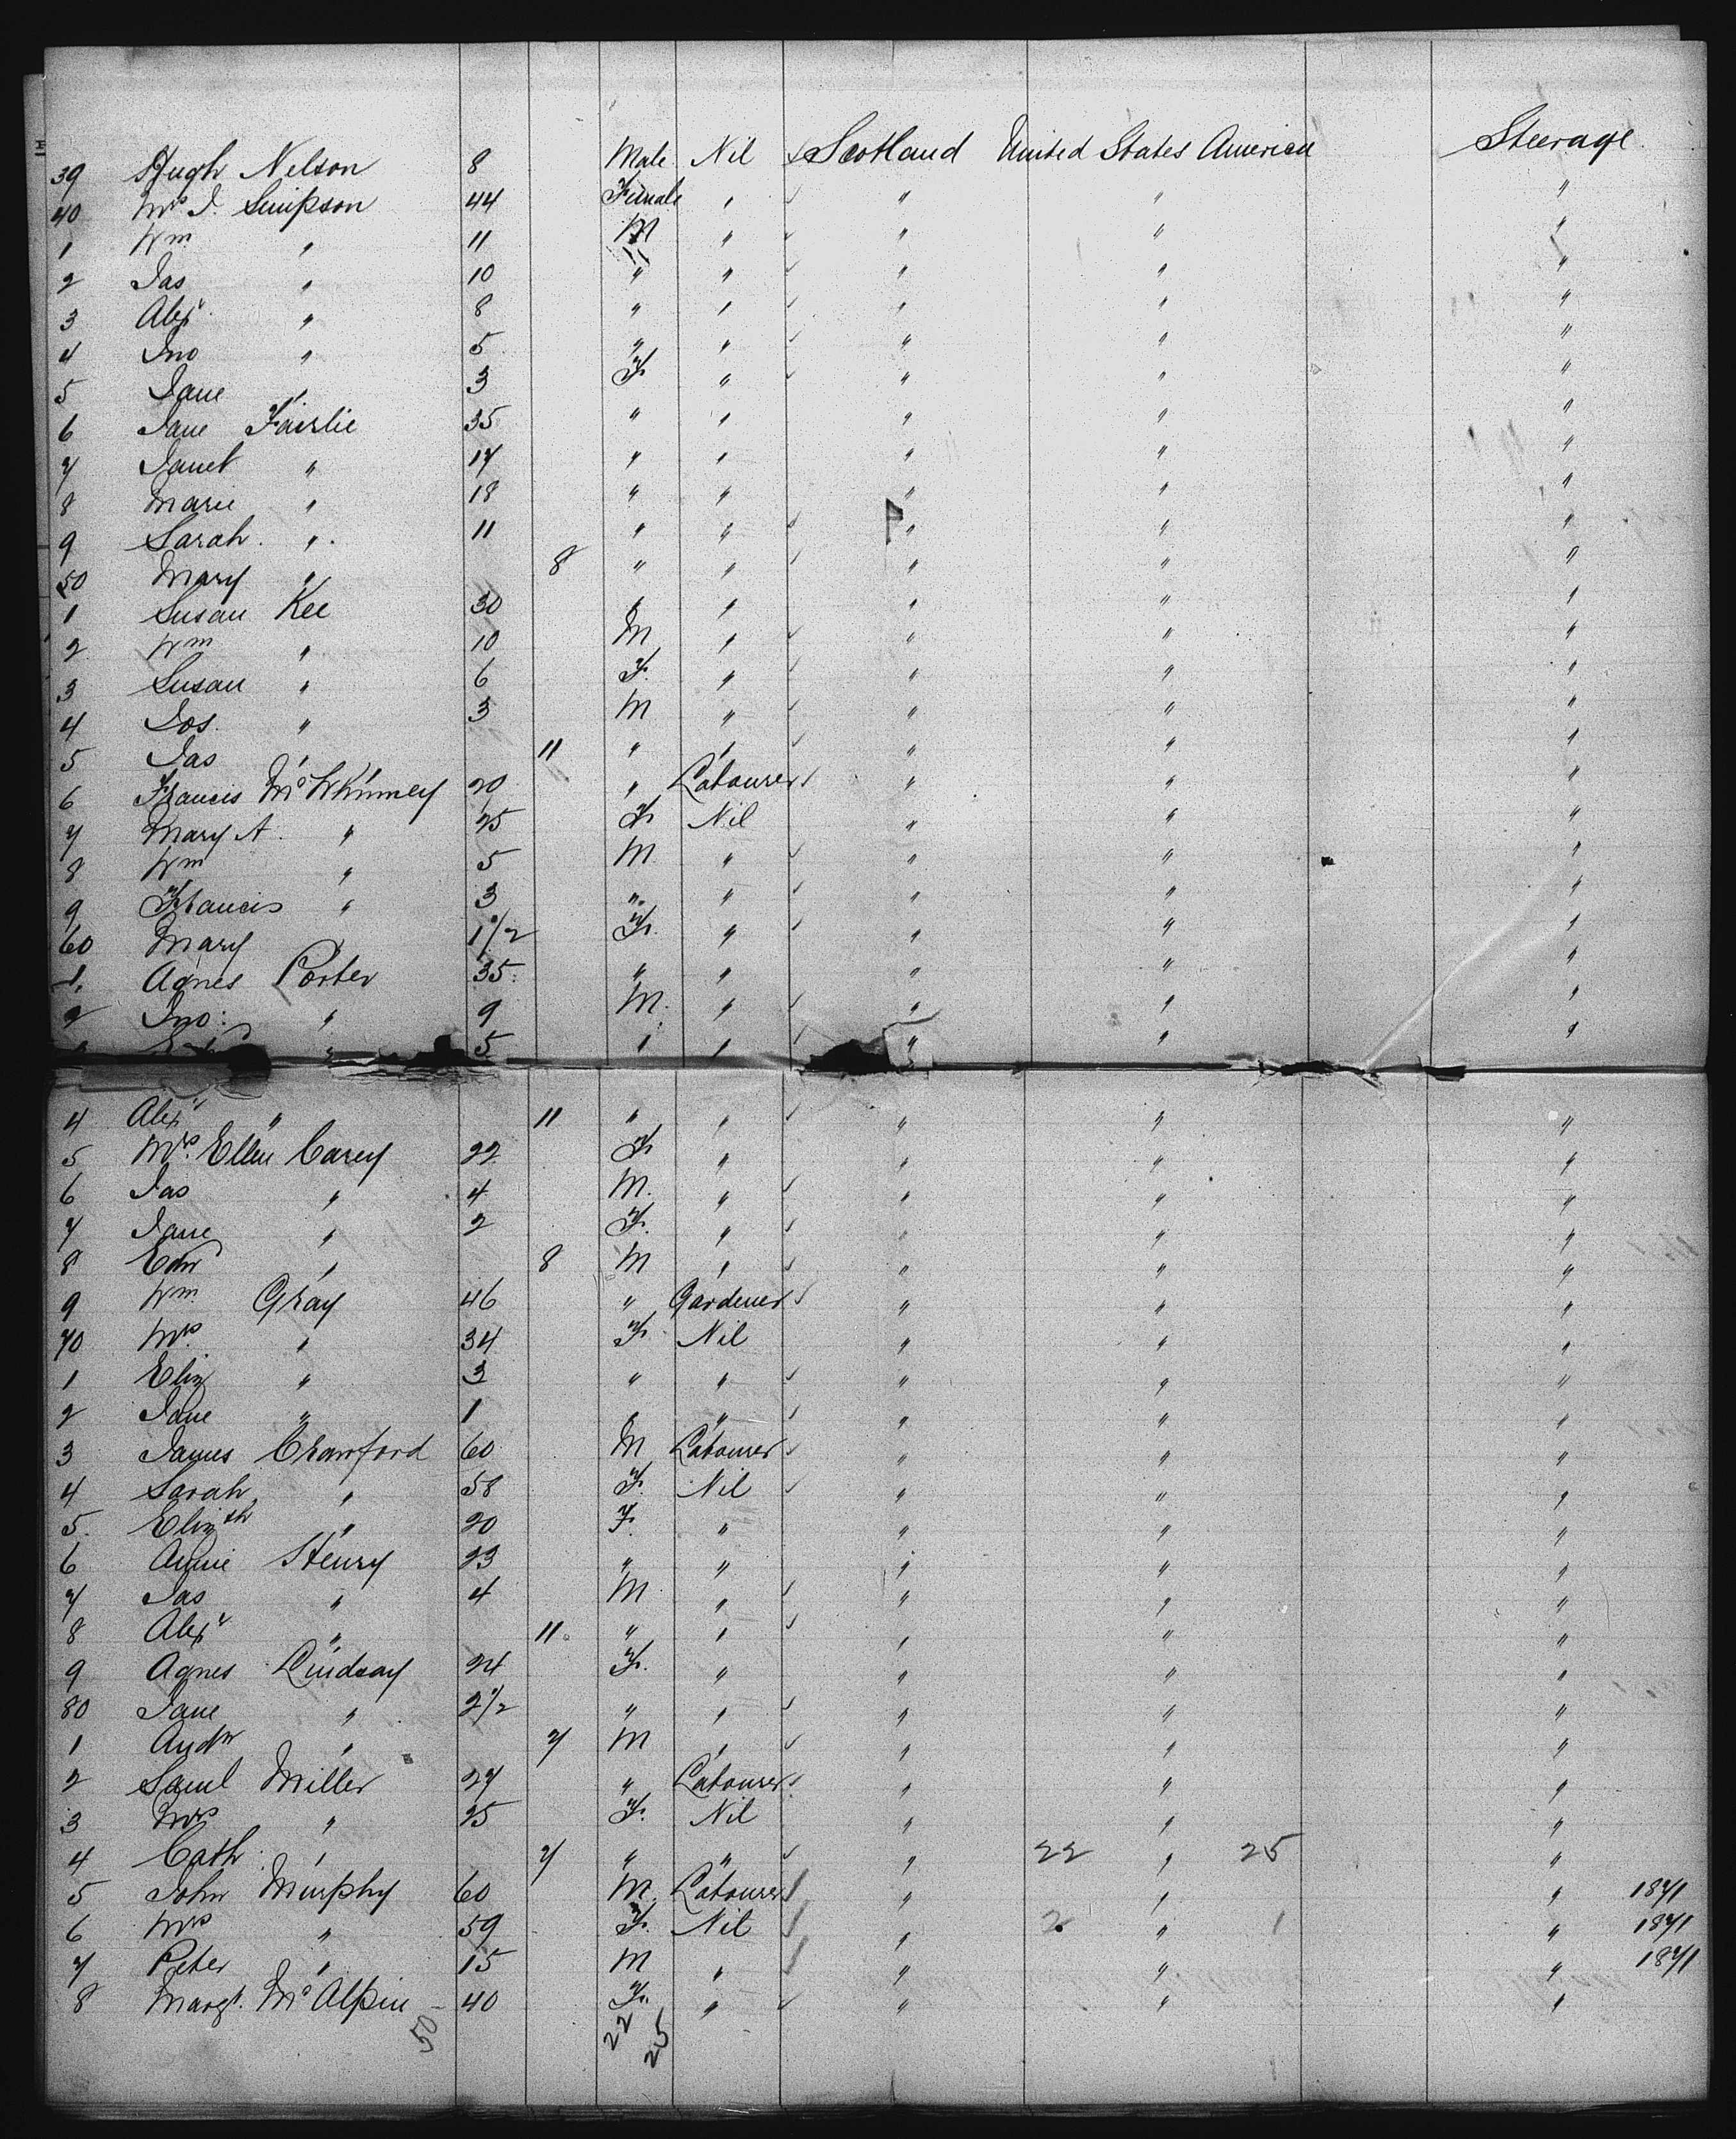 39 Hugh Nelson 8 Male Nil ✓ Scotland United States America Steerage
40 Mrs J. Simpson 44 Female " ✓ " " "
1 Wm " 11 M " ✓ " " "
2 Jas " 10 " " ✓ " " "
3 Alexr " 8 " " ✓ " " "
4 Jno " 5 " " ✓ " " "
5 Jane " 3 F " ✓ " " "
6 Jane Fairlie 35 " " " " "
7 Janet " 17 " " " " "
8 Marie " 18 " " " " "
9 Sarah " 11 " " ✓ " " "
50 Mary " 8 " " ✓ " " "
1 Susan Kee 30 " " " " "
2 Wm " 10 M " ✓ " " "
3 Susan " 6 F. " ✓ " " "
4 Jos. " 3 M " ✓ " " "
5 Jas " 11 " " ✓ " " "
6 Francis McWhinney 20 " Labourer ✓ " " "
7 Mary A. " 25 F Nil " " "
8 Wm " 5 M " ✓ " " "
9 Francis " 3 " " ✓ " " "
60 Mary 1 1/2 F. " ✓ " " "
1. Agnes Porter 35 " " " " "
2 Jno: " 9 M. " ✓ " " "
" 5 " " ✓ " " "
4 Alexr " 11 " " ✓ " " "
5 Mrs. Ellen Carey 22 F " " " "
6 Jas " 4 M. " ✓ " " "
7 Jane " 2 F. " ✓ " " "
8 Edw " 8 M " ✓ " " "
9 Wm. Gray 46 " Gardener ✓ " " "
70 Mrs. " 34 F. Nil " " "
1 Eliz " 3 " " ✓ " " "
2 Jane " 1 " " ✓ " " "
3 James Crawford 60 M Labourer ✓ " " "
4 Sarah " 58 F. Nil ✓ " " "
5. Elizth " 20 F. " " " "
6 Annie Henry 23 " " " " "
7 Jas " 4 M. " ✓ " " "
8 Alexr " 11. " " ✓ " " "
9 Agnes Lindsay 24 F. " " " "
80 Jane " 2 1/2 " " ✓ " " "
1 Andw " 7 M " ✓ " " "
2 Saml Miller 27 " Labourer ✓ " " "
3 Mrs " 25 F. Nil " " "
4 Cath. " 7 " " ✓ " 22 " 25 "
5 John Murphy 60 M. Labourer ✓ " " " 1871
6 Mrs " 59 F. Nil ✓ " 2 " 1 " 1871
7 Peter " 15 M " ✓ " " " 1871
8 Margt. McAlpin - 40 F. " ✓ " " "
50 22 25